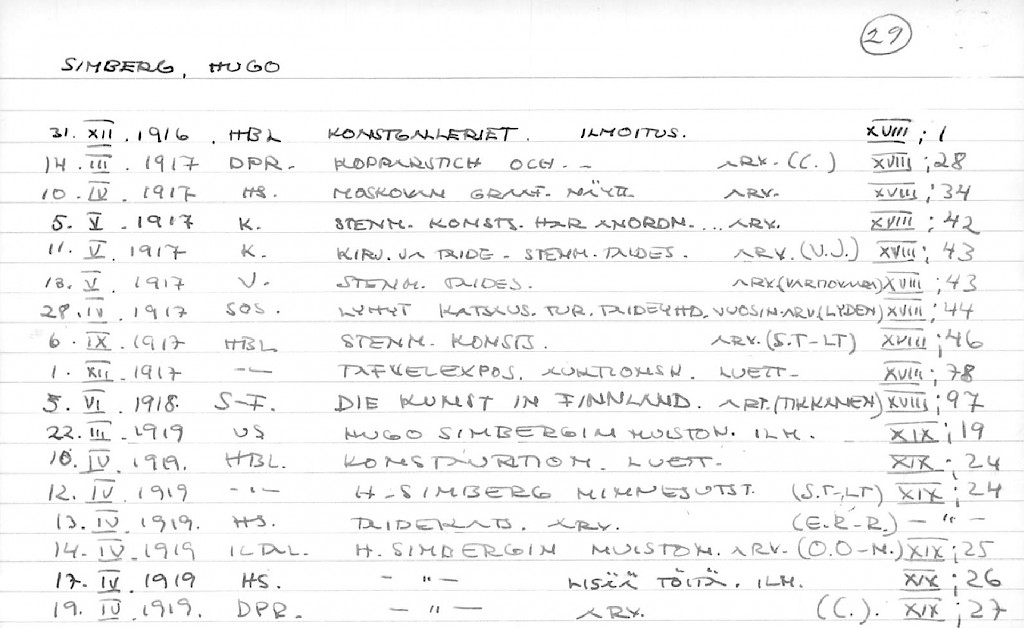 29
SIMBERG, HUGO
31. XII. 1916. HBL KONSTGALLERIET. ILMOITUS. XVIII; 1
14. III. 1917 DPR. KOPPARSTICH OCH - - ARV. (C.) XVIII; 28
10. IV. 1917 HS. MOSKOVAN GRAAF. NÄYTT. ARV. XVIII; 34
5. V. 1917 K. STENM. KONSTS. HAR ANORDN.... ARV. XVIII; 42
11. V. 1917 K. KIRJ. JA TAIDE - STENM. TAIDES. ARV. (V.J.) XVIII; 43
13. V. 1917 V. STENM. TAIDES. ARV. XVIII; 43
28. IV. 1917 SOS. LYHYT KATSAUS. TUR. TAIDEYHD. VUOSIN. ARV. (LYDEN) XVIII; 44
6. IX. 1917 HBL STENM. KONSTS. ARV. (S.T-LT) XVIII; 46
1. XII. 1917 -"- TAFVELEXPOS. AUKTIONSK. LUETT- XVIII; 78
5. VI. 1918. S-F. DIE KUNST IN FINNLAND. ART. (TIKKANEN) XVIII; 97
22. III. 1919 US HUGO SIMBERGIN MUISTON. ILM. XIX; 19
10. IV. 1919. HBL. KONSTAUKTION. LUETT- XIX; 24
12. IV. 1919 -"- H. SIMBERG MINNESUTST. (S.T-LT) XIX; 24
13. IV. 1919. HS. TAIDEKATS. ARV. (E.R-R.) - " -
14. IV. 1919 ILTAL. H. SIMBERGIN MUISTON. ARV. (O.O-N.) XIX; 25
17. IV. 1919 HS. - " - LISÄÄ TÖITÄ. ILM. XIX; 26
19. IV. 1919. DPR. - " - ARV. (C.). XIX; 27